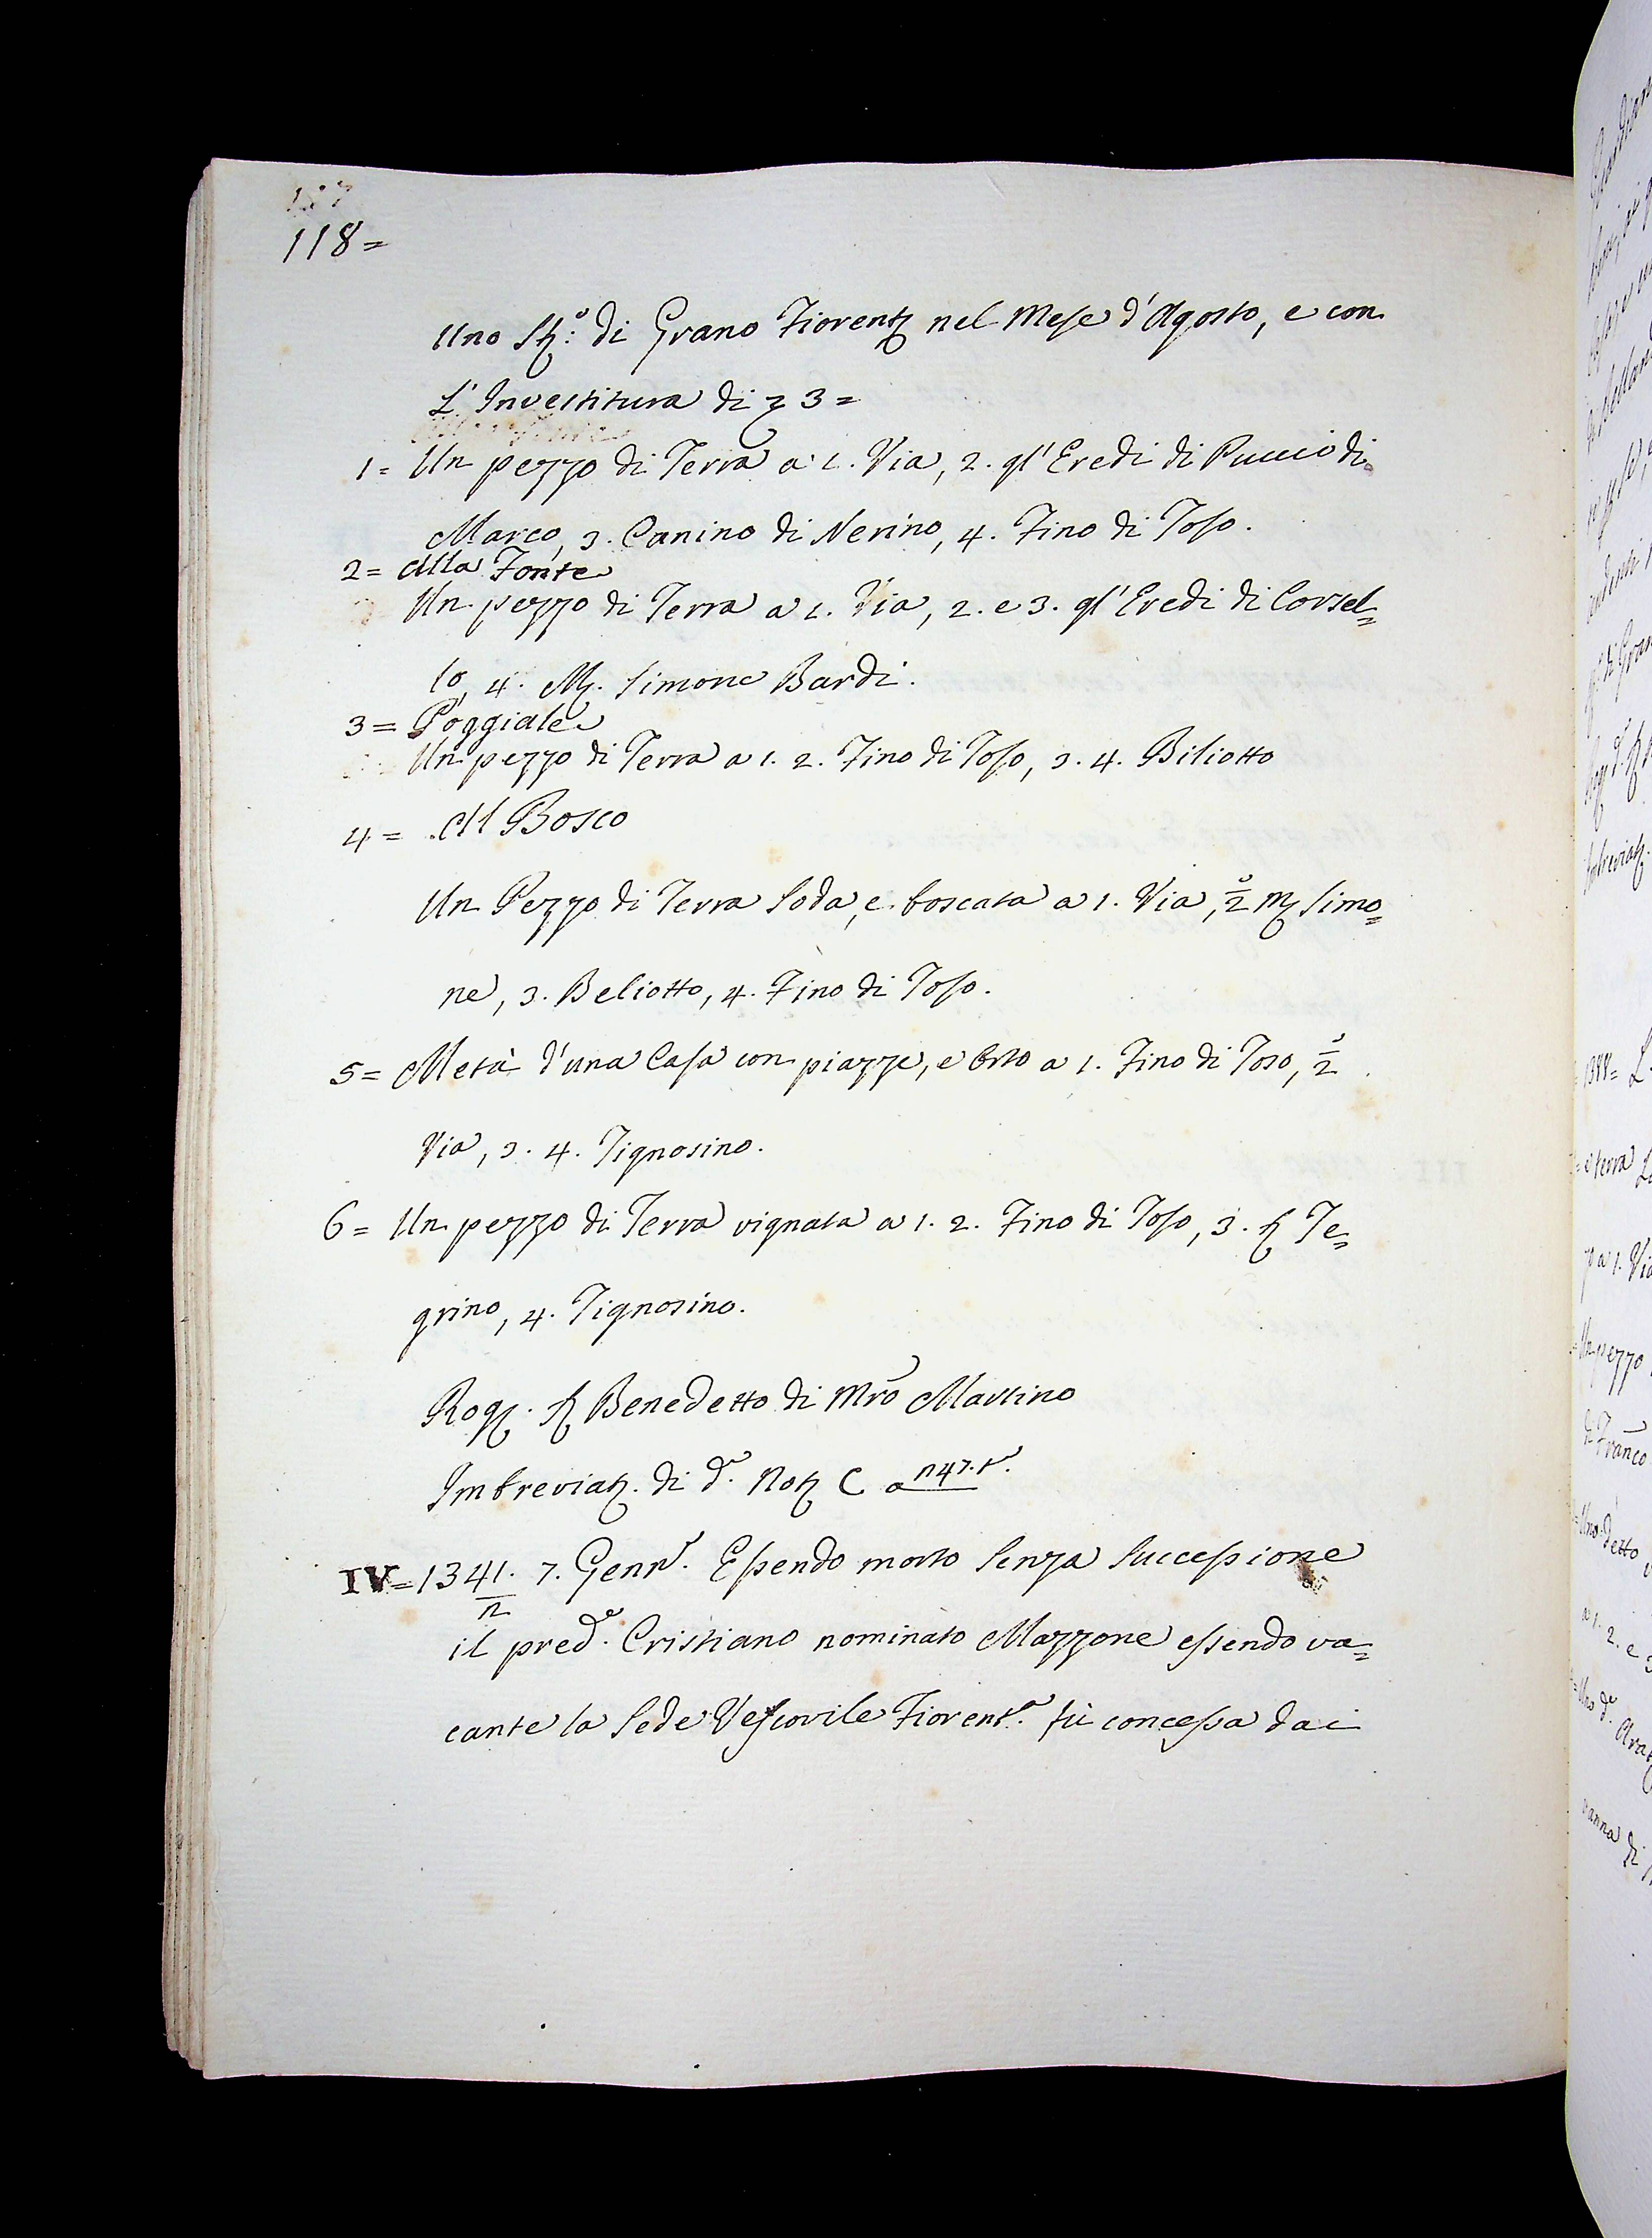 118=
Uno St:º di Grano Fiorent. nel Mese d'Agosto, e con
L'Investitura di 3=
1= Un pezzo di Terra a 1. Via, 2. gl'Eredi di Puccio di
Marco, 3. Canino di Nerino, 4. Fino di Toso.
2= Alla Fonte
Un pezzo di Terra a 1. Via, 2. e 3. gl'Eredi di Corsel=
lo, 4. M. Simone Bardi.
3= Poggiale
Un pezzo di Terra a 1. 2. Fino di Toso, 3. 4. Biliotto
4= Al Bosco
Un Pezzo di Terra Soda, e boscata a 1. Via, 2 M Simo=
ne, 3. Beliotto, 4. Fino di Toso.
5= Metà d'una Casa con piazze, e Orto a 1. Fino di Toso, 2
Via, 3. 4. Tignosino.
6= Un pezzo di Terra vignata a 1. 2. Fino di Toso, 3. S Te=
grino, 4. Tignosino.
Rog. S Benedetto di Mrõ Martino
Imbreviaz. di dº. Not C a 47. tº.
IV=1341. 7. Gennº. Essendo morto Senza Successione
2
il predº. Cristiano nominato Mazzone essendo va=
cante la Sede Vescovile Fiorentª. fù concessa dai